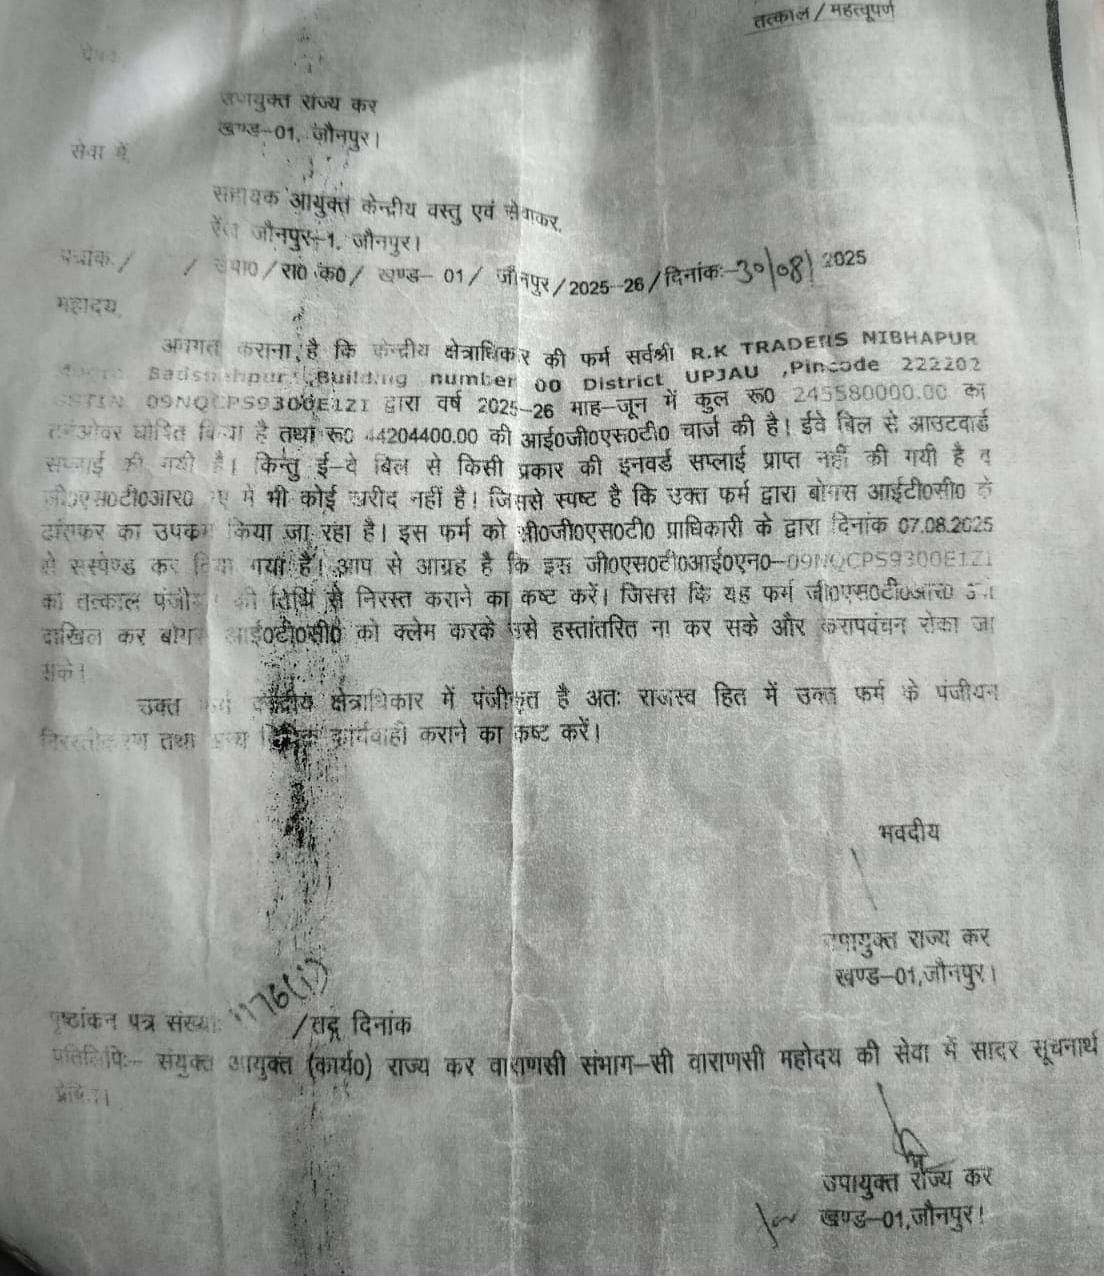 तत्काल / महत्वपूर्ण
उपायुक्त राज्य कर
खण्ड-01, जौनपुर।
सेवा में
सहायक आयुक्त केन्द्रीय वस्तु एवं सेवाकर,
रेंज जौनपुर-1, जौनपुर।
पत्रांक:/ / उपा0/रा0 क0/ खण्ड- 01/ जौनपुर/2025-26/दिनांकः-30/08/2025
महोदय,
अवगत कराना है कि केन्द्रीय क्षेत्राधिकार की फर्म सर्वश्री R.K TRADERS NIBHAPUR
Badshahpur, Building number 00 District UPJAU ,Pincode 222202
GSTIN 09NQCPS9300E1Z1 द्वारा वर्ष 2025-26 माह-जून में कुल रू0 245580000.00 का
टर्नओवर घोषित किया है तथा रू0 44204400.00 की आई0जी0एस0टी0 चार्ज की है। ईवे बिल से आउटवार्ड
सप्लाई की गयी है। किन्तु ई-वे बिल से किसी प्रकार की इनवर्ड सप्लाई प्राप्त नहीं की गयी है व
जी0एस0टी0आर0 में भी कोई खरीद नहीं है। जिससे स्पष्ट है कि उक्त फर्म द्वारा बोगस आई0टी0सी0 के
ट्रांसफर का उपक्रम किया जा रहा है। इस फर्म को सी0जी0एस0टी0 प्राधिकारी के द्वारा दिनांक 07.08.2025
से सस्पेण्ड कर दिया गया है। आप से आग्रह है कि इस जी0एस0टी0आई0एन0-09NQCPS9300E1Z1
को तत्काल पंजीयन की तिथि से निरस्त कराने का कष्ट करें। जिससे कि यह फर्म जी0एस0टी0आर0
दाखिल कर बोगस आई0टी0सी0 को क्लेम करके उसे हस्तांतरित ना कर सके और करापवंचन रोका जा
सके।
उक्त फर्म केन्द्रीय क्षेत्राधिकार में पंजीकृत है अतः राजस्व हित में उक्त फर्म के पंजीयन
निरस्तीकरण तथा अन्य विधिक कार्यवाही कराने का कष्ट करें।
भवदीय
उपायुक्त राज्य कर
खण्ड-01,जौनपुर।
पृष्ठांकन पत्र संख्याः 1176(1) /तद् दिनांक
प्रतिलिपिः- संयुक्त आयुक्त (कार्य0) राज्य कर वाराणसी संभाग-सी वाराणसी महोदय की सेवा में सादर सूचनार्थ
प्रेषित।
उपायुक्त राज्य कर
खण्ड-01,जौनपुर।